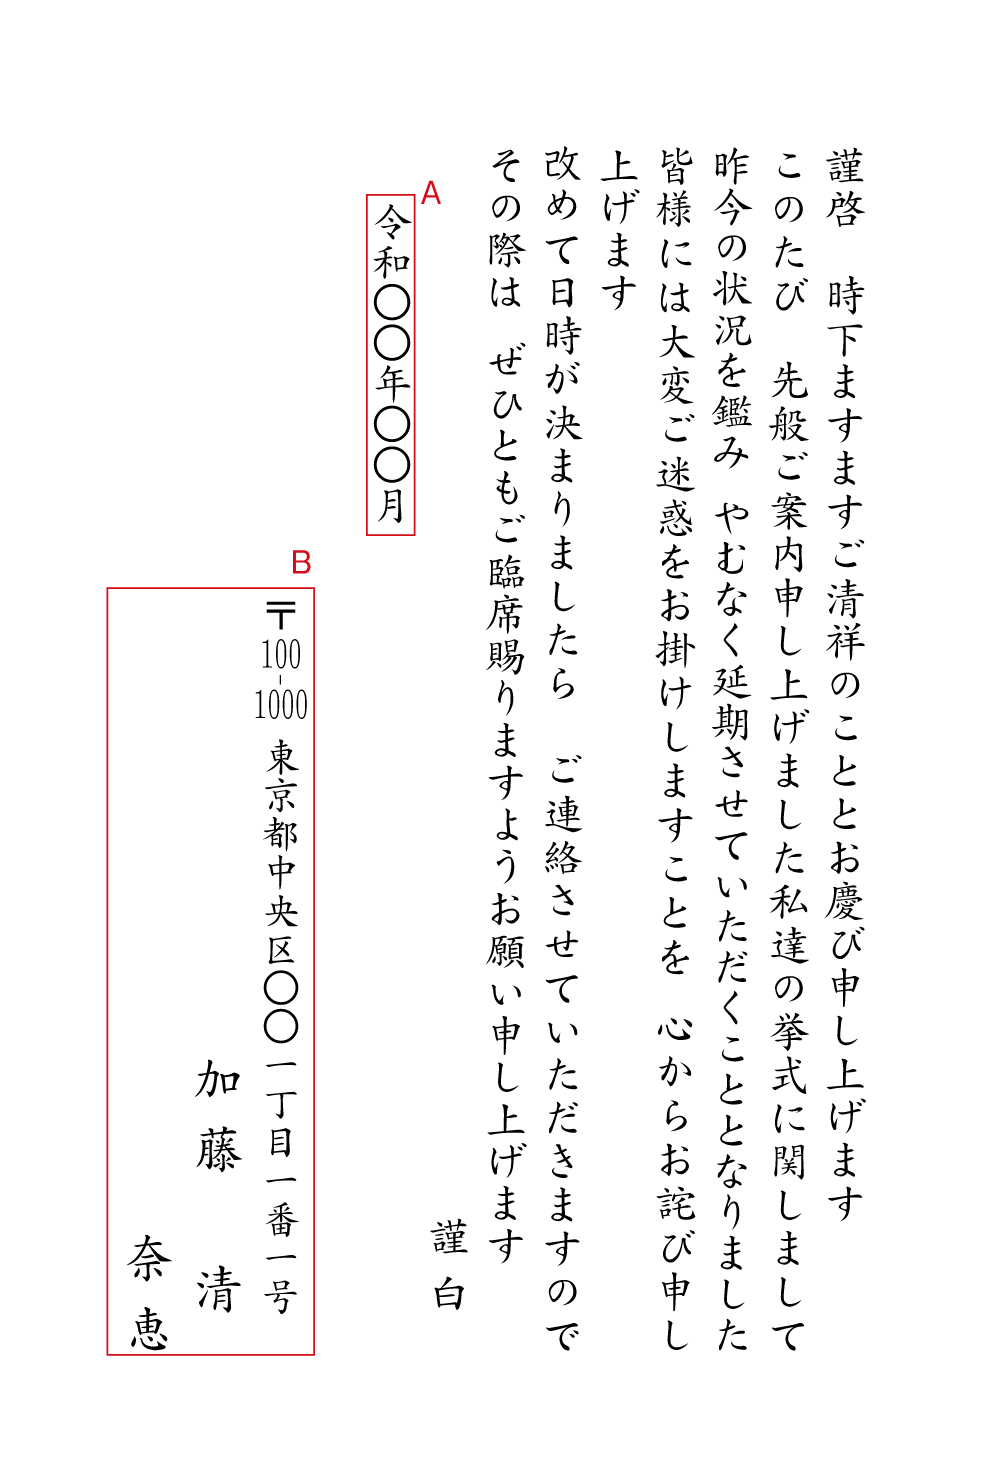 謹啓　時下ますますご清祥のこととお慶び申し上げます
このたび　先般ご案内申し上げました私達の挙式に関しまして
昨今の状況を鑑み　やむなく延期させていただくこととなりました
皆様には大変ご迷惑をお掛けしますことを　心からお詫び申し
上げます
改めて日時が決まりましたら　ご連絡させていただきますので
その際は　ぜひともご臨席賜りますようお願い申し上げます
謹白
A
令和〇〇年〇〇月
B
〒100-1000　東京都中央区〇〇一丁目一番一号
加藤　清
奈恵